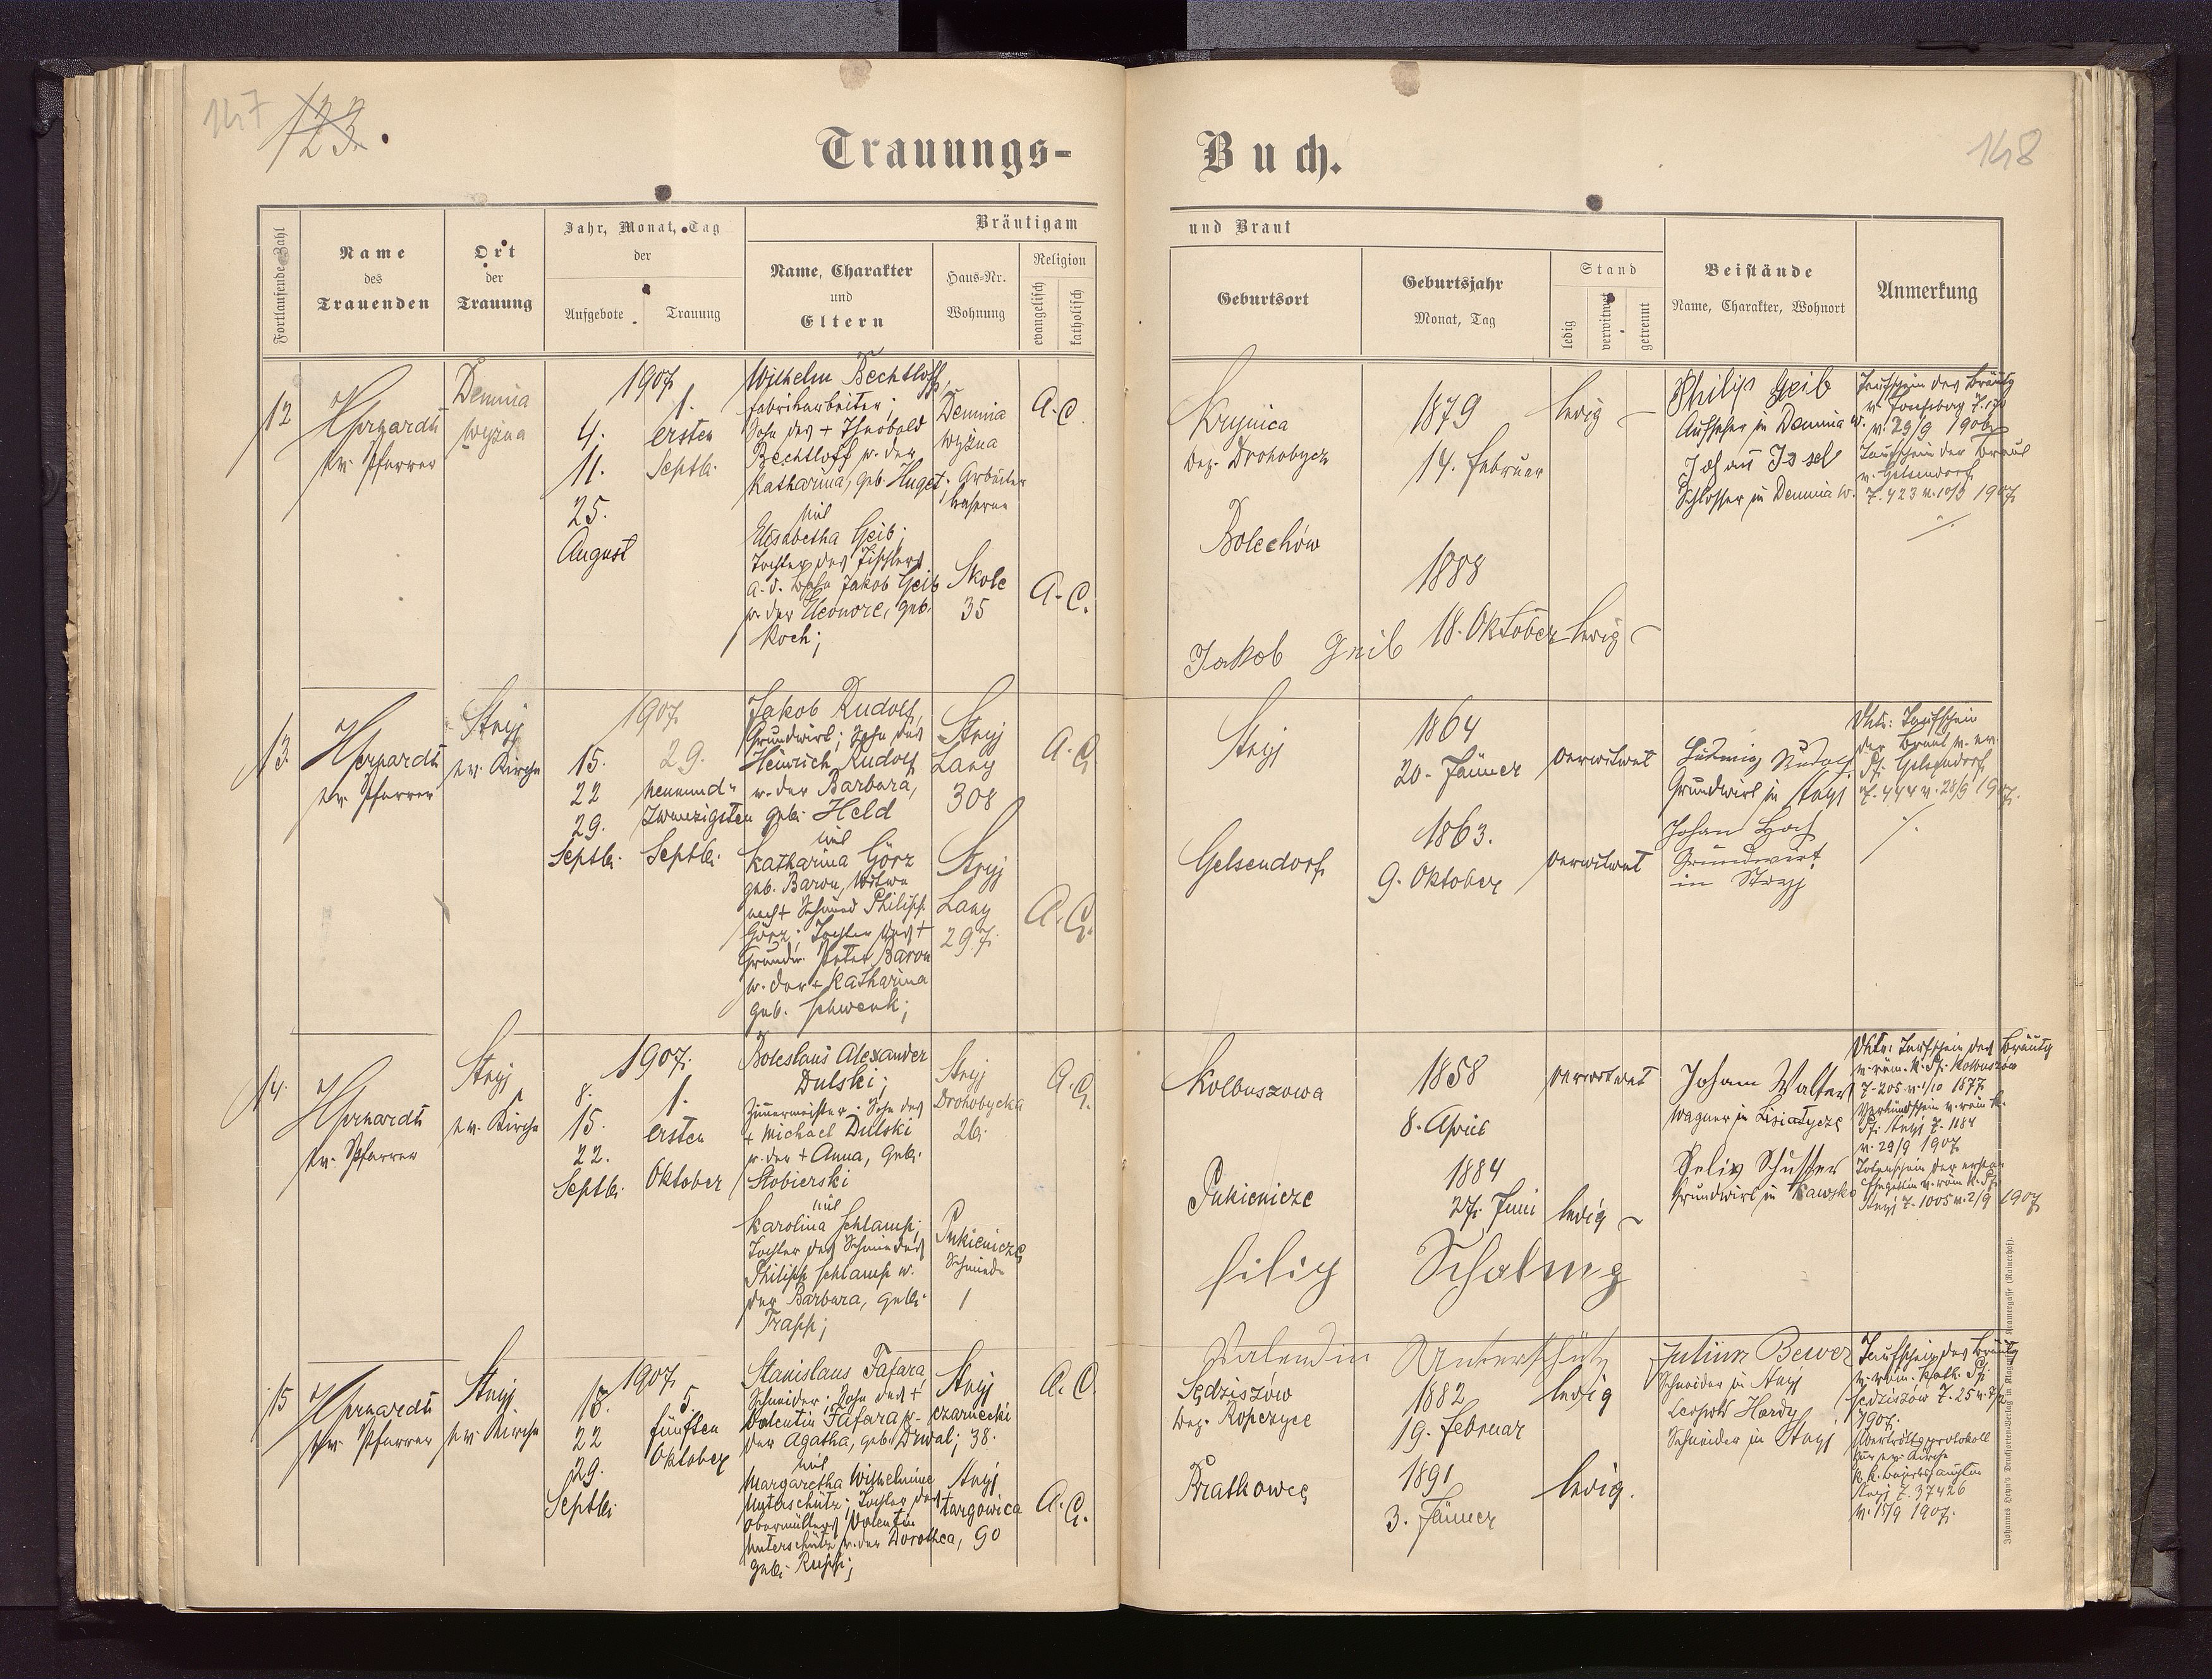 147
123.
148
Trauungs-Buch.
Fortlaufende Zahl
Name des Trauenden
Ort der Trauung
Jahr, Monat, Tag der
Aufgebote
Trauung
Bräutigam und Braut
Name, Charakter und Eltern
Haus-Nr. Wohnung
Religion
evangelisch
katholisch
Geburtsort
Geburtsjahr
Monat, Tag
Stand
ledig
verwitwet
getrennt
Beistände
Name, Charakter, Wohnort
Anmerkung
12
ev. Pfarrer
Demnia
wyżna
1907
4.
11.
25.
August
1.
ersten
Septb.
Wilhelm Bechtloff,
Fabrikarbeiter;
Sohn des + Theobald
Bechtloff u. der
Katharina, geb. Huget
mit
Elisabetha Geib;
Tochter des Tischlers
Jakob Geib
u. der Eleonore, geb.
Koch;
Demnia
wyżna
Arbeiter
Skole
35
A. C.
A. C.
Krynica
Bez. Drohobycz
Bolechów
1879
14. Februar
1888
18. Oktober
ledig
ledig
Jakob Geib
Philip Geib
Aufseher in Demnia w.
Schlosser in Demnia w.
Taufschein des Bräutg
v. 29/9 1906
Taufschein der Braut
v. Gelsendorf
Z. 423 v. 1907
13.
ev. Pfarrer
Stryj
ev. Kirche
1907
15.
22
29.
Septb.
29.
neunund-
zwanzigsten
Septb.
Jakob Rudolf,
Grundwirt; Sohn des
Heinrich Rudolf
u. der Barbara,
geb. Held
mit
Katharina Görz
geb. Baron, Witwe
nach + Schmied Philipp
Görz; Tochter des +
Grundw. Peter Baron
u. der + Katharina
geb. Schwenk;
Stryj
Łany
308
Stryj
Łany
297.
A. C.
A. C.
Stryj
Gelsendorf
1864
20. Jänner
1863.
9. Oktober
verwitwet
verwitwet
Ludwig Rudolf
Grundwirt in Stryj
Johan Hoch
Grundwirt
in Stryj
Taufschein
der Braut v. ev.
Pf. Gelsendorf
Z. 444 v. 28/9 1907.
14.
ev. Pfarrer
Stryj
ev. Kirche
1907.
8.
15.
22.
Septb.
1.
ersten
Oktober
Boleslaus Alexander
Dulski;
Zimmermeister; Sohn des
+ Michael Dulski
u. der + Anna, geb.
Stobierski
mit
Karolina Schlamp;
Tochter des Schmiedes
Philipp Schlamp u.
der Barbara, geb.
Trapp;
Stryj
Drohobycka
26.
Pukienicze
Schmiede
1
A. C.
Kolbuszowa
Pukienicze
1858
8. April
1884
27. Juni
verwitwet
ledig
Johann Walter
Wagner in Lisiatycze
Grundwirt in Kawsko
Taufschein des Bräutg
v. röm. k. Pf. Kolbuszow
Z. 205 v. 1/10 1877.
Verkündschein v. röm. k.
Pf. Stryj Z. 1184
v. 29/9 1907.
Totenschein der ersten
Ehegattin v. röm. k. Pf.
Stryj Z. 1005 v. 2/9 1907.
15
ev. Pfarrer
Stryj
ev. Kirche
1907.
22
29.
Septb.
5.
fünften
Oktober
Stanislaus Fafara,
Schneider; Sohn des +
Valentin Fafara u.
der Agatha, geb. Drwal;
mit
Margaretha Wilhelmine
Unterschütz; Tochter des +
Obermüllers Valentin
Unterschütz u. der Dorothea,
geb. Rupp;
Stryj
Czarnecki
38.
Stryj
targowica
90
A. C.
A. C.
Valendin Unterschütz
Sędziszów
Bez. Ropczyce
Bratkowce
1882
19. Februar
1891
3. Jänner
ledig
ledig.
Julius Bewer
Schneider in Stryj
Leopold Hardy
Schneider in Stryj
Taufschein des Bräutg
v. röm. kath. Pf.
Sędziszow Z. 25 v.
1907.
Übertrittsprotokoll
zur ev. Kirche
Stryj Z. 37426
1907.